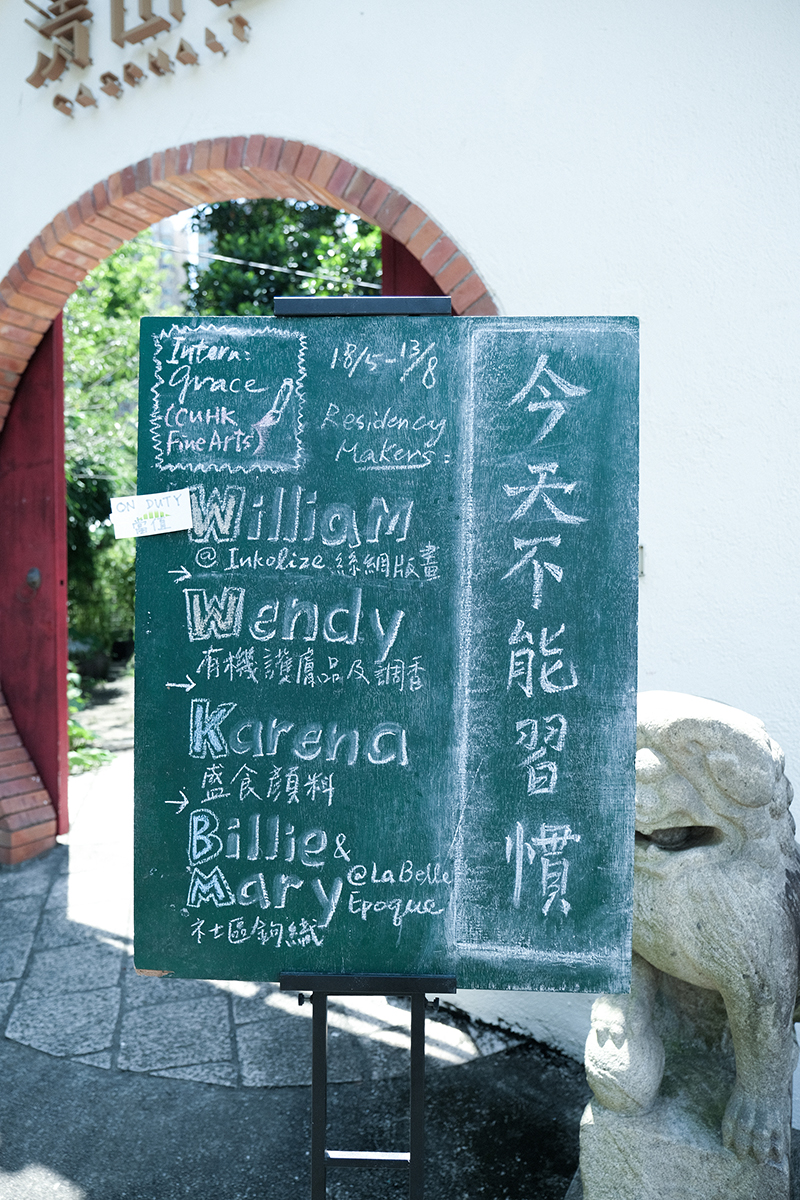 Intern:
Grace
(CUHK
Fine Arts)
18/5-13/8
Residency
Makers:
ON DUTY
當值
William
@ Inkolize 絲網版畫
→
Wendy
有機護膚品及調香
→
Karena
盛食顏料
→
Billie &
Mary @La Belle
Epoque
社區鉤織
今天不能習慣